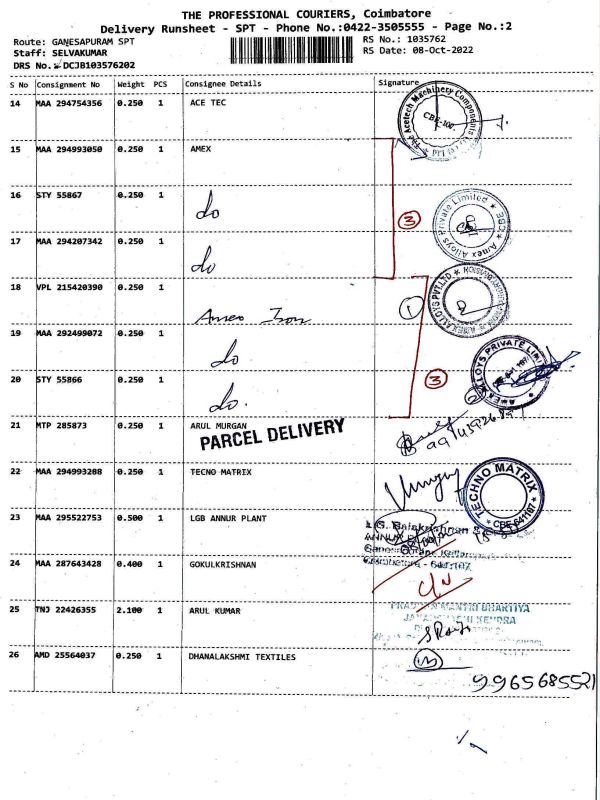 THE PROFESSIONAL COURIERS, Coimbatore
Delivery Runsheet - SPT - Phone No.:0422-3505555 - Page No.:2
Route: GANESAPURAM SPT RS No.: 1035762
Staff: SELVAKUMAR RS Date: 08-Oct-2022
DRS No. DCJB103576202
S No Consignment No Weight PCS Consignee Details Signature
14 MAA 294754356 0.250 1 ACE TEC
The Acetech Machinery Components
CBE-107.
15 MAA 294993050 0.250 1 AMEX
16 STY 55867 0.250 1 do
3
Amex Alloys Private Limited ★ CBE
17 MAA 294207342 0.250 1 do
18 VPL 215420390 0.250 1
1
Amex Iron
19 MAA 292499072 0.250 1 do
20 STY 55866 0.250 1 do.
3
21 MTP 285873 0.250 1 ARUL MURGAN
PARCEL DELIVERY
22 MAA 294993288 0.250 1 TECNO MATRIX
TECHNO MATRIX
★ CBE-641107 ★
23 MAA 295522753 0.500 1 LGB ANNUR PLANT
24 MAA 287643428 0.400 1 GOKULKRISHNAN
25 TNJ 22426355 2.100 1 ARUL KUMAR
26 AMD 25564037 0.250 1 DHANALAKSHMI TEXTILES
9965685521